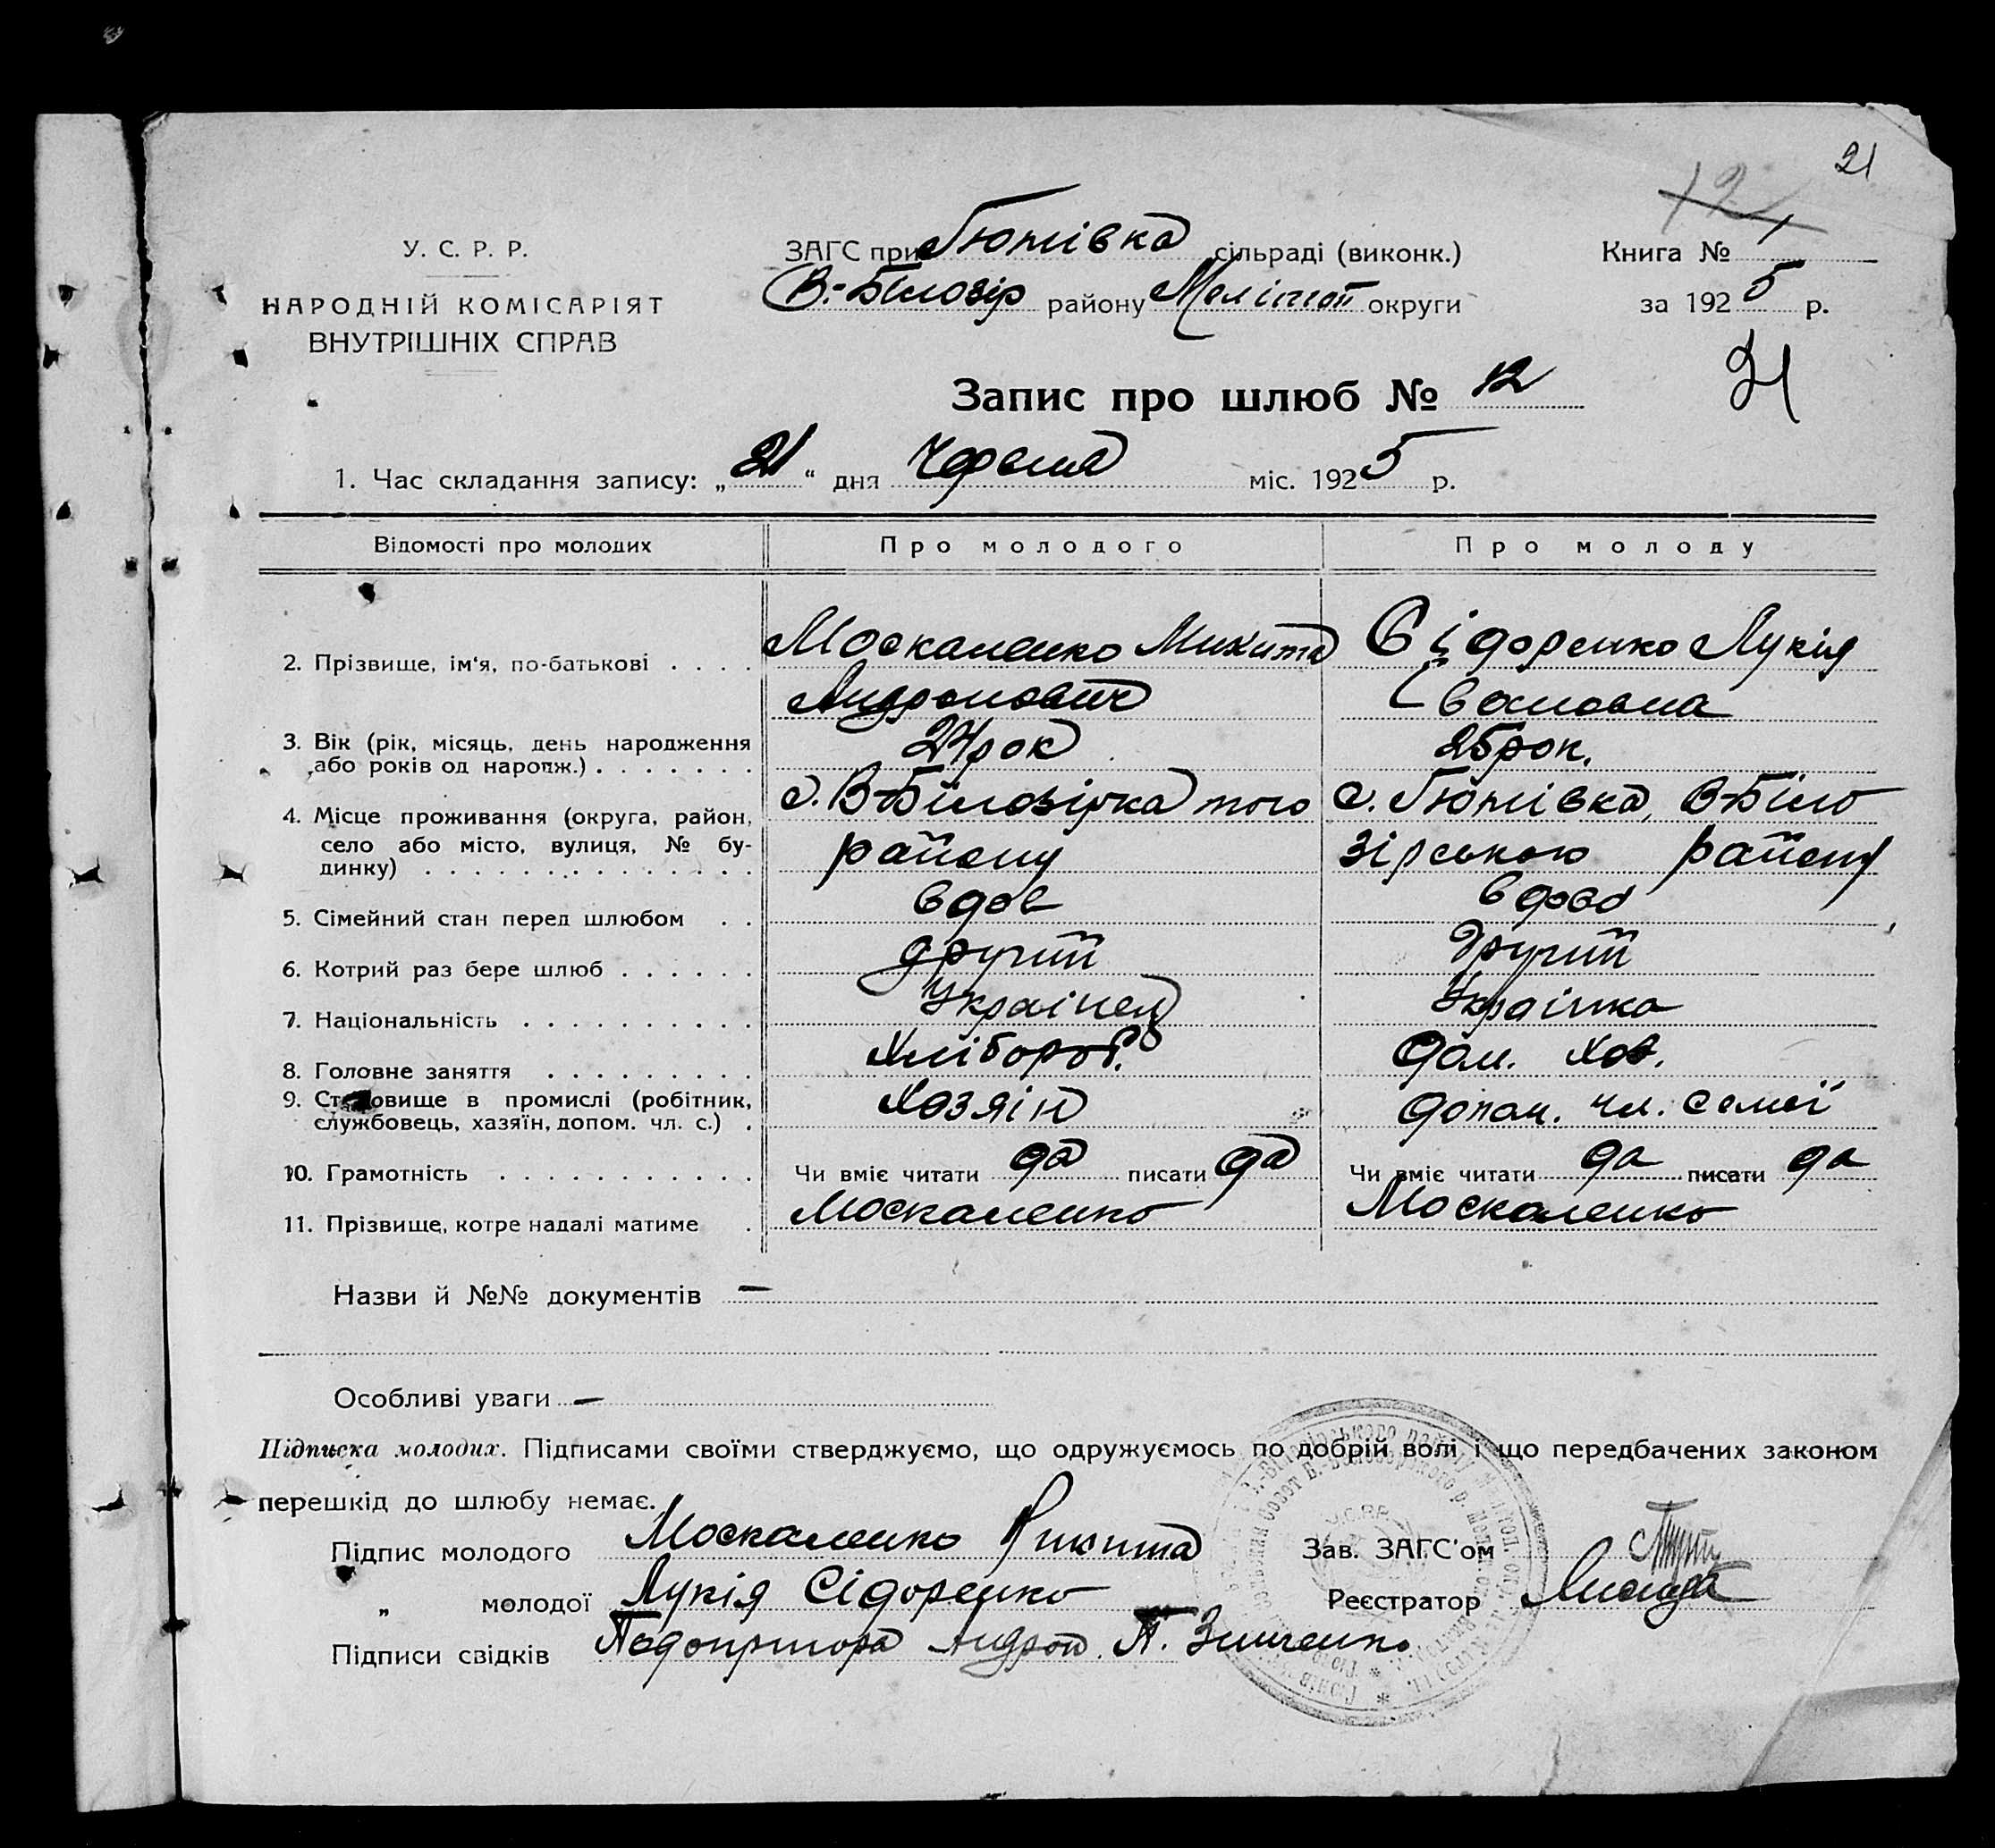 21
12
У. С. Р. Р.
НАРОДНІЙ КОМІСАРІЯТ
ВНУТРІШНІХ СПРАВ
ЗАГС при Гюнівка сільраді (виконк.)
В.-Білозір району Мелітоп округи
Книга № 1
за 1925 р.
21
Запис про шлюб № 12
1. Час складання запису: „21“ дня Червня міс. 1925 р.
Відомості про молодих Про молодого Про молоду
2. Прізвище, ім‘я, по-батькові . . . . Москаленко Микита Сідоренко Лукія
Андронович
3. Вік (рік, місяць, день народження 24 рок 25 рок.
або років од народж.) . . . . . . .
4. Місце проживання (округа, район, с. В-Білозірка того с. Гюнівка, В-Біло
село або місто, вулиця, № бу- району зірського району
динку) . . . . . . . . . . . . . .
5. Сімейний стан перед шлюбом . . вдов вдова
6. Котрий раз бере шлюб . . . . . . другий Другий
7. Національність . . . . . . . . . . Українец Українка
8. Головне заняття . . . . . . . . . Хлібороб. Дом. Хоз.
9. Становище в промислі (робітник, Хозяін допом. чл. семії
службовець, хазяїн, допом. чл. с.) .
10. Грамотність . . . . . . . . . . . Чи вміє читати да писати да Чи вміє читати да писати да
11. Прізвище, котре надалі матиме . Москаленко Москаленко
Назви й №№ документів —
Особливі уваги —
Підписка молодих. Підписами своїми стверджуємо, що одружуємось по добрій волі і що передбачених законом
перешкід до шлюбу немає.
Підпис молодого Москаленко Микита Зав. ЗАГС‘ом
„ молодої Лукія Сідоренко Реєстратор
Підписи свідків Подопригора Андрон. П. Зинченко